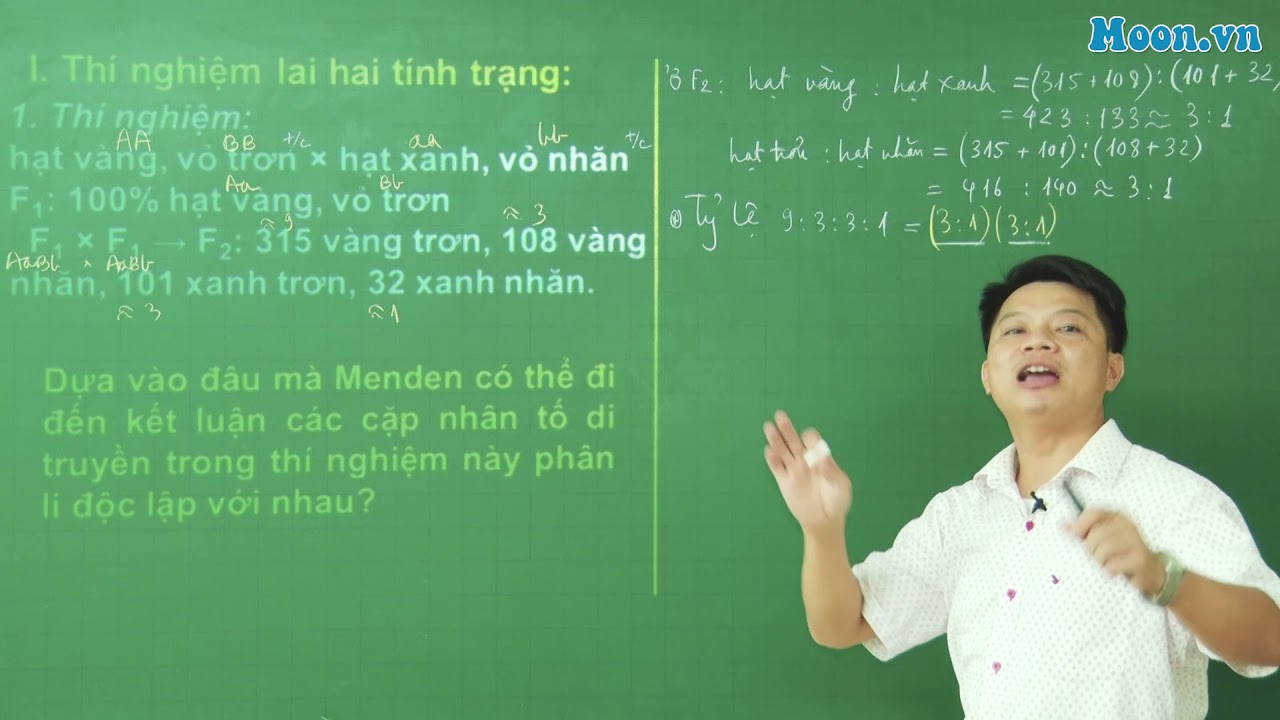 Moon.vn
I. Thí nghiệm lai hai tính trạng:
1. Thí nghiệm:
AA BB t/c aa bb t/c
hạt vàng, vỏ trơn × hạt xanh, vỏ nhăn
Aa Bb
F₁: 100% hạt vàng, vỏ trơn
≈ 9 ≈ 3
F₁ × F₁ → F₂: 315 vàng trơn, 108 vàng
AaBb × AaBb
nhăn, 101 xanh trơn, 32 xanh nhăn.
≈ 3 ≈ 1
Dựa vào đâu mà Menden có thể đi
đến kết luận các cặp nhân tố di
truyền trong thí nghiệm này phân
li độc lập với nhau?
Ở F2: hạt vàng : hạt xanh = (315 + 108) : (101 + 32)
= 423 : 133 ≈ 3 : 1
hạt trơn : hạt nhăn = (315 + 101) : (108 + 32)
= 416 : 140 ≈ 3 : 1
Tỷ lệ 9 : 3 : 3 : 1 = (3 : 1) (3 : 1)